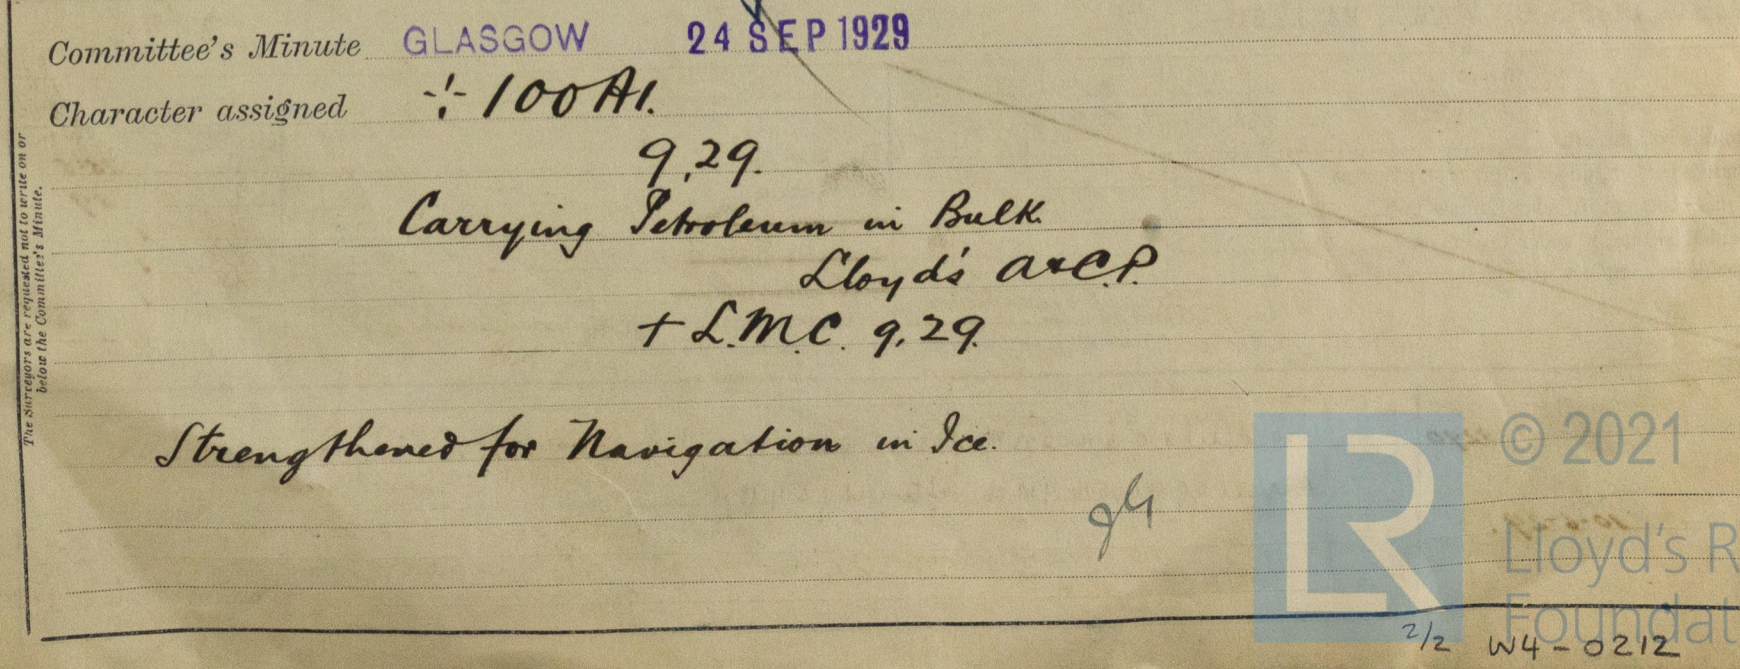 Committee's Minute GLASGOW 24 SEP 1929
Character assigned -:- 100A1.
9,29.
Carrying Petroleum in Bulk.
Lloyd's A&C.P.
+ L.M.C. 9,29.
Strengthened for Navigation in Ice.
The Surveyors are requested not to write on or
below the Committee's Minute.
LR © 2021
Lloyd's R
Foundat
2/2 W4-0212